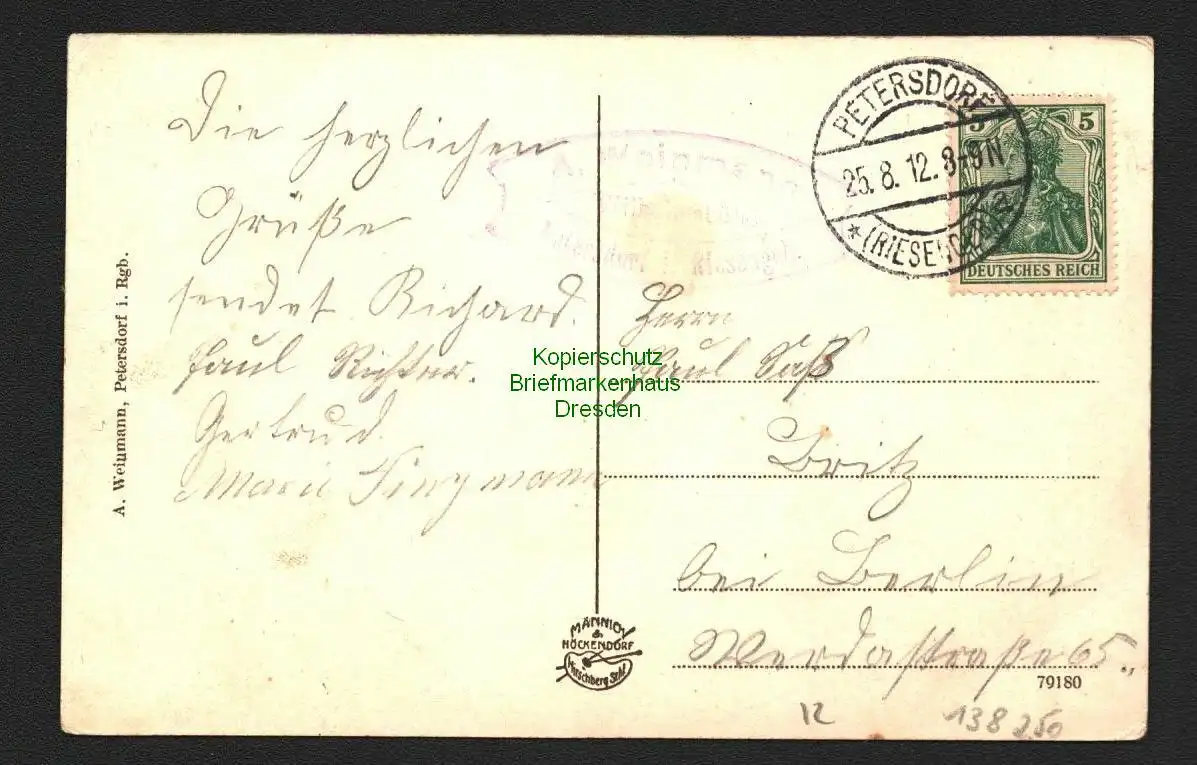 Die herzlichen
Grüße
sendet Richard.
Paul Richter.
Gertrud
Marie
A. Weinmann, Petersdorf i. Rgb.
PETERSDORF
25. 8. 12. 8-9N
* (RIESENGEB.)
5 5
DEUTSCHES REICH
Herrn
Paul Saß
Britz
bei Berlin
Werdastraße 65.
Kopierschutz
Briefmarkenhaus
Dresden
MÄNNICH
&
HÖCKENDORF
Hirschberg Schl.
79180
12
138 250